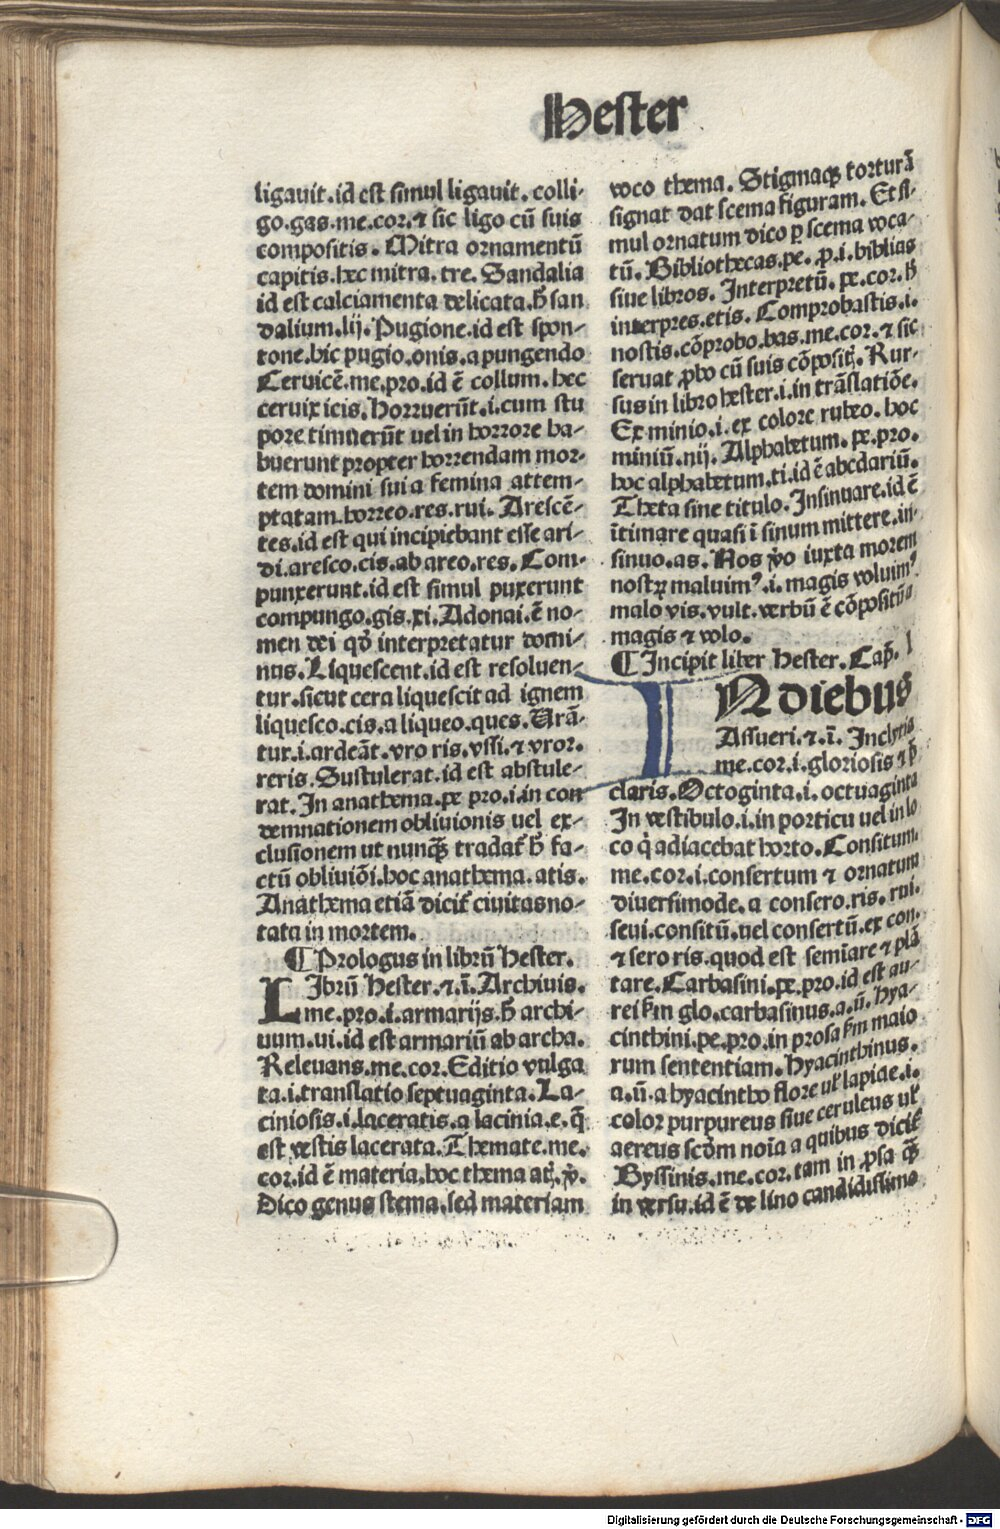 Hester
ligauit.id est simul ligauit. colli-
go.gas.me.cor.⁊ sic ligo cū suis
compositis. Mitra ornamentū
capitis.hec mitra.tre. Sandalia
id est calciamenta delicata.h̄ san
dalium.lij. Pugione.id est spon-
tone.hic pugio.onis.a pungendo
Ceruicē.me.pro.id ē collum.hec
ceruix icis. Horruerūt.i.cum stu
pore timuerūt uel in horrore ha-
buerunt propter horrendam mor-
tem domini sui a femina attem-
ptatam.horreo.res.rui. Arescē-
tes.id est qui incipiebant esse ari-
di.aresco.cis.ab areo.res. Com-
punxerunt.id est simul puxerunt
compungo.gis.xi. Adonai.ē no-
men dei qd̄ interpretatur domi-
nus. Liquescent.id est resoluen-
tur.sicut cera liquescit ad ignem
liquesco.cis.a liqueo.ques. Urā-
tur.i.ardeāt.uro ris.ussi.⁊ uror.
reris. Sustulerat.id est abstule-
rat. In anathema.pe pro.i.in con
demnationem obliuionis uel ex-
clusionem ut nunqꝫ tradat᷑ h̄ fa-
ctū obliuiōi.hoc anathema.atis.
Anathema etiā dicit᷑ ciuitas no-
tata in mortem.
¶ Prologus in librū Hester.
LIbrū Hester.⁊.ī. Archiuis.
me.pro.i.armarijs.h̄ archi-
uum.ui.id est armariū ab archa.
Releuans.me.cor. Editio vulga
ta.i.translatio septuaginta. La-
ciniosis.i.laceratis.a lacinia.e.q̄
est vestis lacerata. Themate.me.
cor.id ē materia.hoc thema atꝭ.ꝟ.
Dico genus stema.sed materiam
voco thema. Stigmaqꝫ torturā
signat dat scema figuram. Et si-
mul ornatum dico ꝑ scema voca-
tū. Bibliothecas.pe.ꝓ.i.biblias
siue libros. Interpretū.pe.cor.h̄
interpres.etis. Comprobastis.i.
nostis.cōprobo.bas.me.cor.⁊ sic
seruat ꝓbo cū suis cōpositꝭ. Rur-
sus in libro hester.i.in trāslatiōe.
Ex minio.i.ex colore rubeo. hoc
miniū.nij. Alphabetum.pe.pro.
hoc alphabetum.ti.id ē abcdariū.
Theta sine titulo. Insinuare.id ē
ītimare quasi ī sinum mittere.in-
sinuo.as. Nos ꝟo iuxta morem
nostꝝ maluimꝰ.i.magis voluimꝰ
malo vis.vult.verbū ē cōpositū a
magis ⁊ volo.
¶ Incipit liber Hester. Cap̄. I
IN diebus
Assueri.⁊.ī. Inclytis
me.cor.i.gloriosis ⁊ p̄
claris. Octoginta.i.octuaginta
In vestibulo.i.in porticu uel in lo
co q̇ adiacebat horto. Consitum.
me.cor.i.consertum ⁊ ornatum
diuersimode.a consero.ris.rui.
seui.consitū.uel consertū.ex con.
⁊ sero ris.quod est semīare ⁊ plā
tare. Carbasini.pe.pro.id est au-
rei ẜm glo.carbasinus.a.ū. Hya-
cinthini.pe.pro.in prosa ẜm maio
rum sententiam. Hyacinthinus.
a.ū.a hyacintho flore uł lapide.i.
color purpureus siue ceruleus uł
aereus scd̄m noīa a quibus dicit᷑
Byssinis.me.cor.tam in ꝓsa qꝫ
in versu.id ē de lino candidissimo
Digitalisierung gefördert durch die Deutsche Forschungsgemeinschaft - DFG